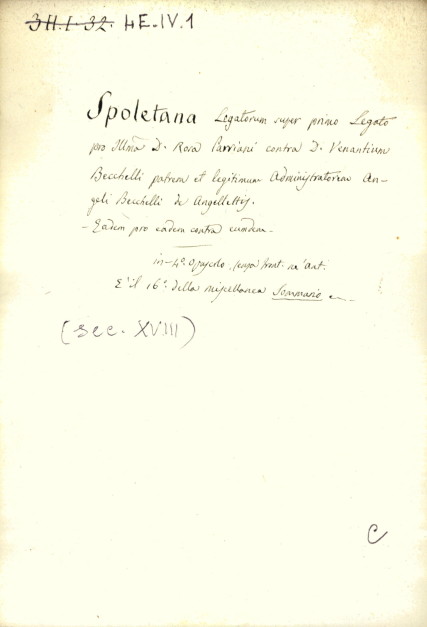 3H.I-32. HE.IV.1
Spoletana Legatorum super primo Legato
pro Illma D. Rosa Parriani contra D. Venantium
Becchelli patrem et legitimum Administratorem An-
geli Becchelli de Angellettis.
- Eadem pro eadem contra eumdem -
in-4° Opuscolo, senza front. né ant.
E' il 16° della miscellanea Sommario
(sec. XVIII)
C